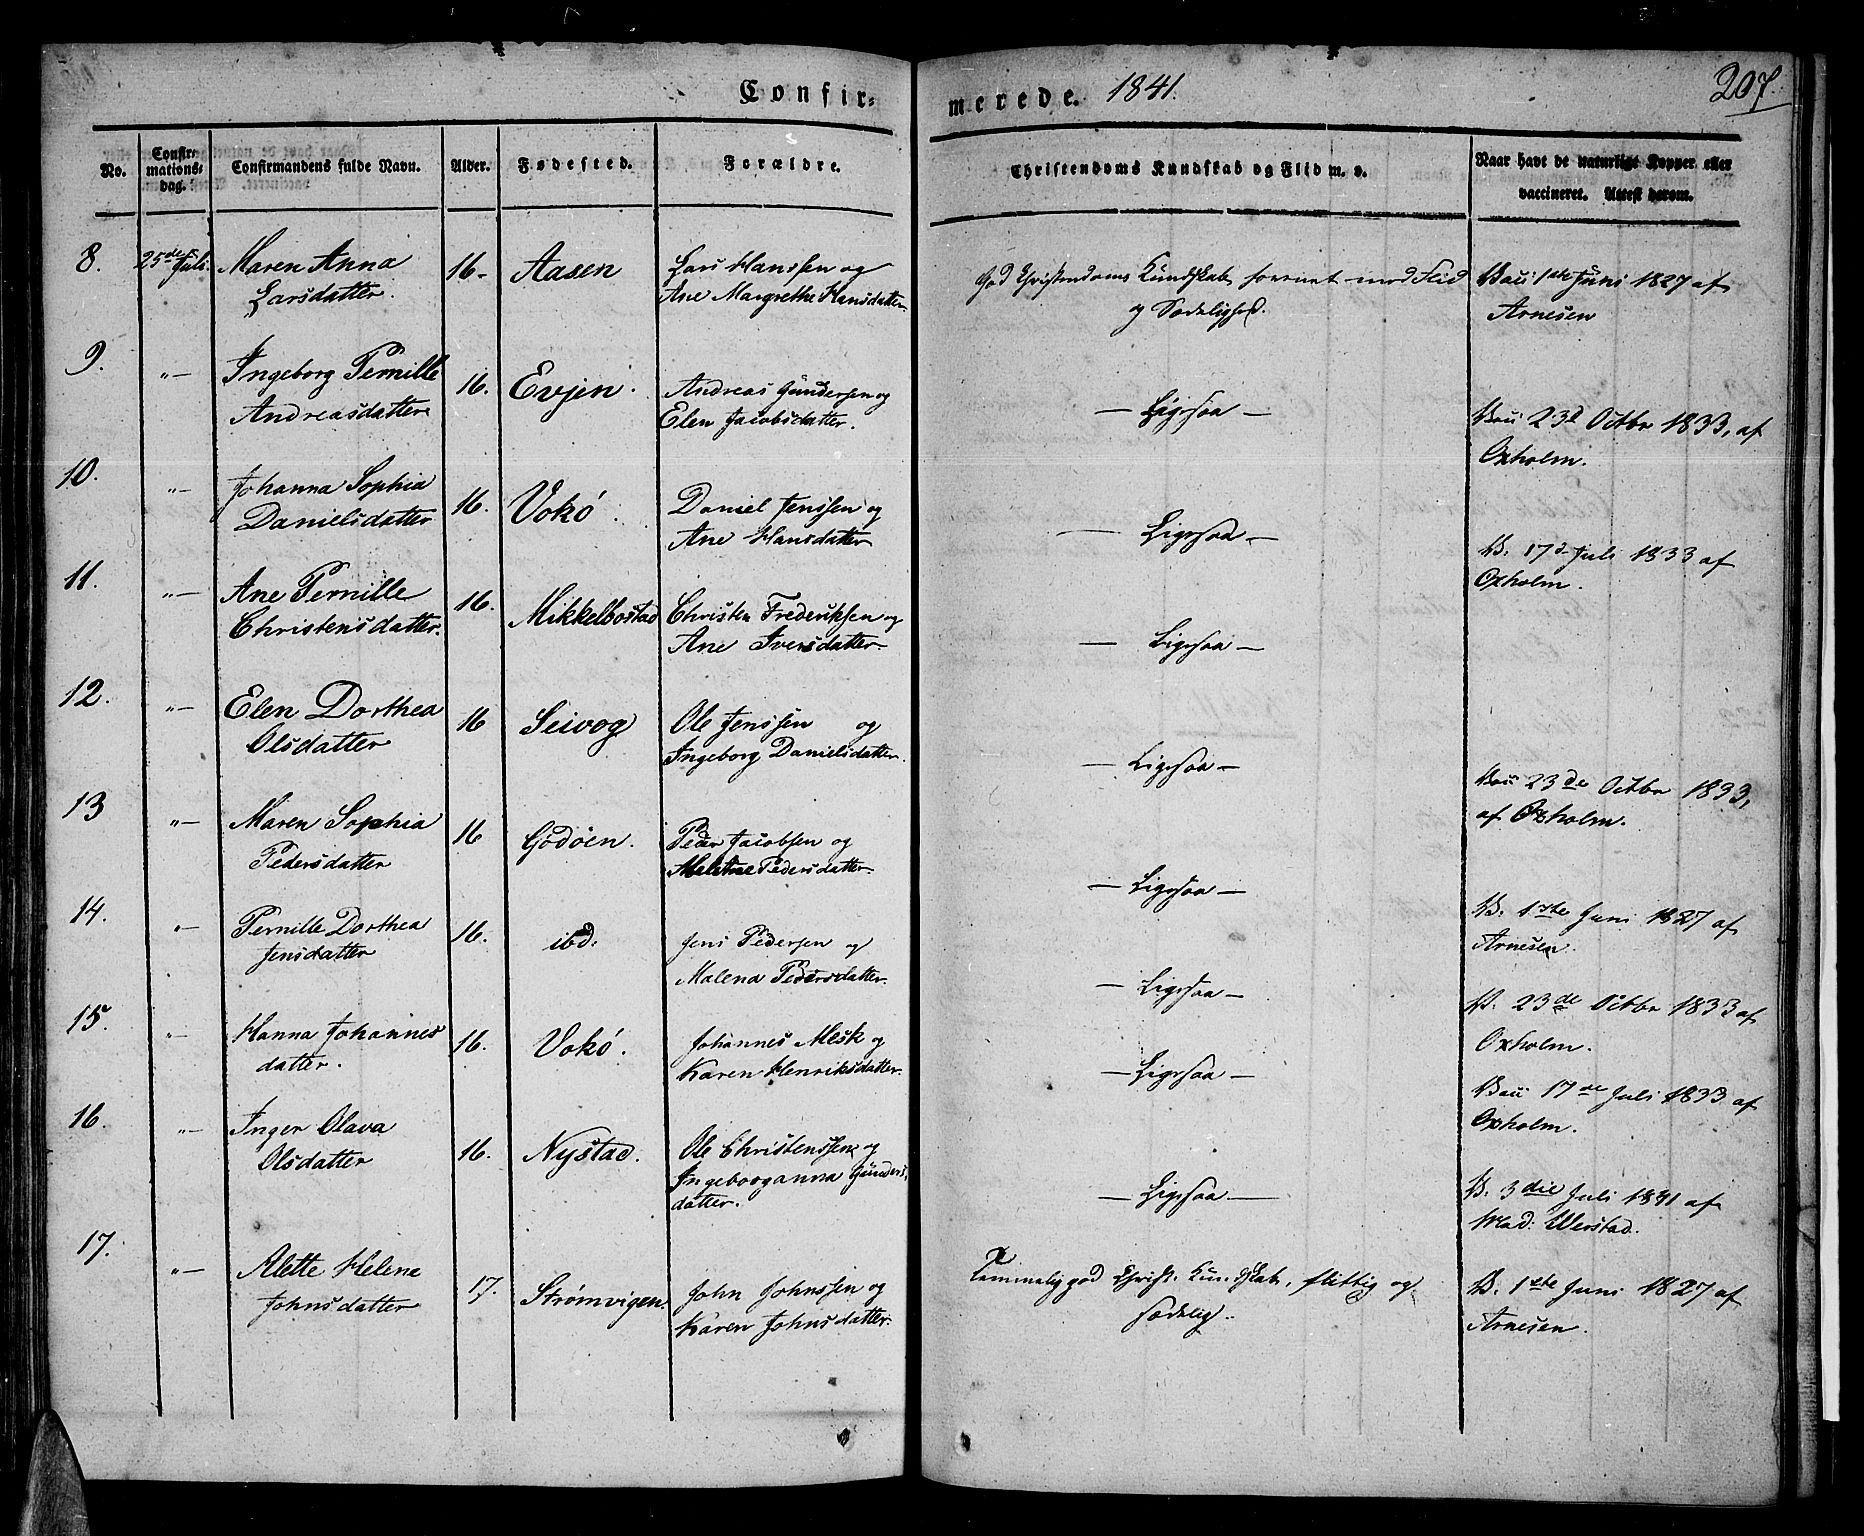 Confir-
merede. 1841.
207.
No.
Confir-
mations-
dag.
Confirmandens fulde Navn.
Alder.
Fødested.
Forældre.
Christendoms Kundskab og Flid m. v.
Naar havt de naturlige Kopper eller
vaccineret. Attest derom.
8. 25de Juli. Maren Anna 16- Aasen Lars Hanssen og God Christendoms Kundskab forenet med Flid Vacc: 1ste Juni 1827 af
Larsdatter. Ane Margrethe Hansdatter og Sædelighed. Arnesen
9. "— Ingeborg Pernille 16. Evjen. Andreas Gundersen og — Ligesaa — Vacc: 23d Octbr 1833, af
Andreasdatter Elen Jacobsdatter. Oxholm.
10. "— Johanna Sophia 16. Vokö. Daniel Jenssen og — Ligesaa — V. 17d Juli 1833 af
Danielsdatter Ane Hansdatter Oxholm.
11. "— Ane Pernille 16. Mikkelbostad Christen Frederiksen og — Ligesaa —
Christensdatter. Ane Iversdatter
12. "— Elen Dorthea 16 Seivog Ole Jenssen og — Ligesaa — Vacc: 23de Octbr 1833,
Olsdatter Ingeborg Danielsdatter. af Oxholm.
13 "— Maren Sophia 16 Godöen. Peder Jacobsen og — Ligesaa — V. 1ste Juni 1827 af
Pedersdatter Pedersdatter. Arnesen
14. "— Pernille Dorthea 16. ibd: Jens Pedersen og — Ligesaa — V. 23de Octbr 1833 af
Jensdatter Malena Pedersdatter. Oxholm.
15. "— Hanna Johannes 16. Vokö. Johannes Mesk og — Ligesaa — Vacc: 17de Juli 1833 af
datter. Karen Henriksdatter. Oxholm.
16. "— Inger Olava 16. Nystad. Ole Christenssen og — Ligesaa — V. 3die Juli 1841 af
Olsdatter Ingeborganna Gunders Mad: Werstad.
datter.
17. "— Alette Helena 17. Strømvigen. John Johnssen og Temmelig god Christ. Kundskab, flittig og V. 1ste Juni 1827 af
Johnsdatter Karen Johnsdatter. sædelig. Arnesen.